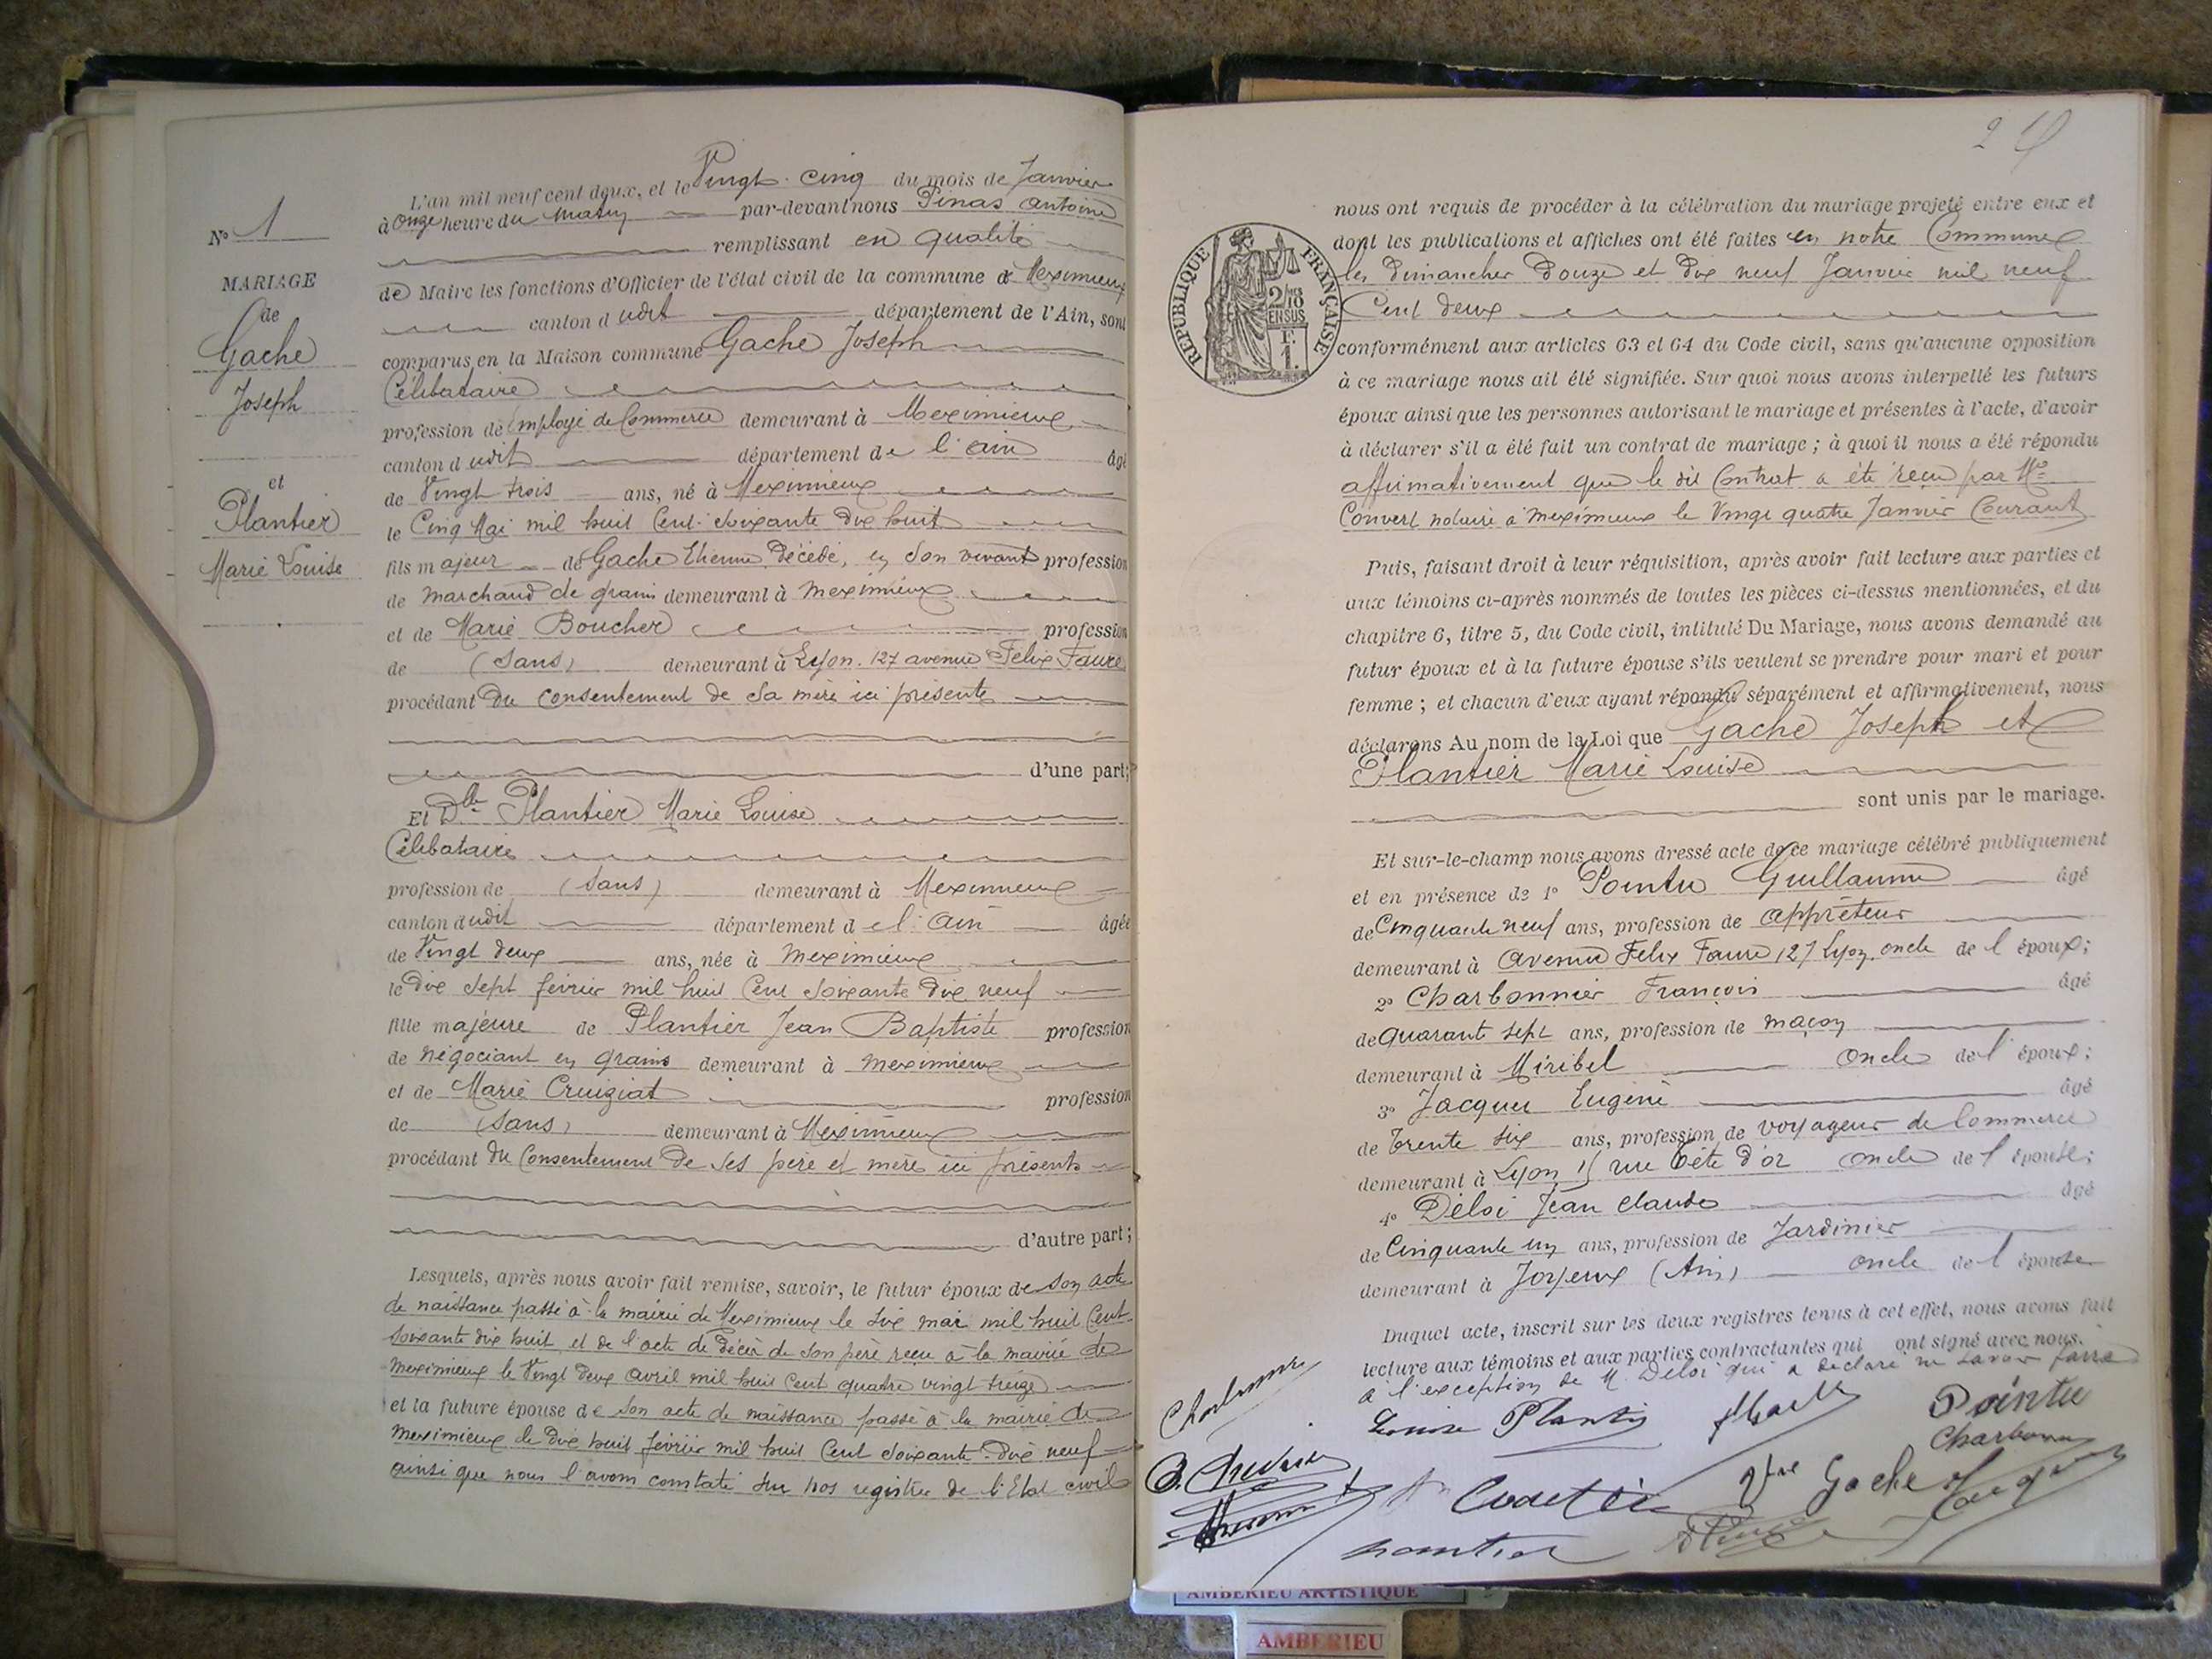 N° 1
MARIAGE
de
Gache
Joseph
et
Plantier
Marie Louise
L'an mil neuf cent deux, et le Vingt-cinq du mois de Janvier
à onze heure du matin par-devant nous Pinas Antoine
remplissant en qualité
de Maire les fonctions d'Officier de l'état civil de la commune de Meximieux
canton dudit département de l'Ain, sont
comparus en la Maison commune Gache Joseph
Célibataire
profession de Employé de Commerce demeurant à Meximieux
canton dudit département de l'ain âgé
de Vingt trois ans, né à Meximieux
le Cinq Mai mil huit Cent soixante dix huit
fils majeur de Gache Etienne décédé, en son vivant profession
de marchand de grains demeurant à meximieux
et de Marie Boucher profession
de (Sans) demeurant à Lyon. 127 avenue Felix Faure
procédant du consentement de sa mère ici présente
d'une part;
Et Dlle Plantier Marie Louise
Célibataire
profession de (Sans) demeurant à Meximieux
canton dudit département de l'ain âgée
de Vingt deux ans, née à meximieux
le dix sept février mil huit Cent soixante dix neuf
fille majeure de Plantier Jean Baptiste profession
de négociant en grains demeurant à meximieux
et de Marie Cruiziat profession
de (sans) demeurant à Meximieux
procédant du Consentement de ses père et mère ici présents
d'autre part;
Lesquels, après nous avoir fait remise, savoir, le futur époux de son acte
de naissance passé à la mairie de Meximieux le six mai mil huit Cent
soixante dix huit et de l'acte de décès de son père reçu à la mairie de
meximieux le Vingt deux avril mil huit cent quatre vingt treize
et la future épouse de son acte de naissance passé à la mairie de
meximieux le dix huit février mil huit Cent soixante-dix neuf
ainsi que nous l'avons constaté sur nos registres de l'Etat civil
2
RÉPUBLIQUE FRANÇAISE
2/10
EN SUS
F.
1.
nous ont requis de procéder à la célébration du mariage projeté entre eux et
dont les publications et affiches ont été faites en notre Commune
les dimanches Douze et dix neuf Janvier mil neuf
Cent deux
conformément aux articles 63 et 64 du Code civil, sans qu'aucune opposition
à ce mariage nous ait été signifiée. Sur quoi nous avons interpellé les futurs
époux ainsi que les personnes autorisant le mariage et présentes à l'acte, d'avoir
à déclarer s'il a été fait un contrat de mariage ; à quoi il nous a été répondu
affirmativement que le dit Contrat a été reçu par Me
Convert notaire à meximieux le Vingt quatre Janvier Courant
Puis, faisant droit à leur réquisition, après avoir fait lecture aux parties et
aux témoins ci-après nommés de toutes les pièces ci-dessus mentionnées, et du
chapitre 6, titre 5, du Code civil, intitulé Du Mariage, nous avons demandé au
futur époux et à la future épouse s'ils veulent se prendre pour mari et pour
femme ; et chacun d'eux ayant répondu séparément et affirmativement, nous
déclarons Au nom de la Loi que Gache Joseph et
Plantier Marie Louise
sont unis par le mariage.
Et sur-le-champ nous avons dressé acte de ce mariage célébré publiquement
et en présence de 1° Pointu Guillaume âgé
de Cinquante neuf ans, profession de appréteur
demeurant à Avenue Felix Faure 127 Lyon, oncle de l'époux;
2° Charbonnier François âgé
de quarante sept ans, profession de maçon
demeurant à Miribel oncle de l'époux;
3° Jacques Eugène âgé
de trente six ans, profession de voyageur de Commerce
demeurant à Lyon 15 rue tête d'or oncle de l'épouse;
4° Déloi Jean Claude âgé
de Cinquante un ans, profession de Jardinier
demeurant à Joyeux (Ain) oncle de l'épouse
Duquel acte, inscrit sur les deux registres tenus à cet effet, nous avons fait
lecture aux témoins et aux parties contractantes qui ont signé avec nous.
à l'exception de M. Déloi qui a déclaré ne savoir faire
Charbonnier
Louise Plantier
Pointu
Charbonnier
Vve Gache
Jacques
Plantier
AMBERIEU ARTISTIQUE
AMBERIEU